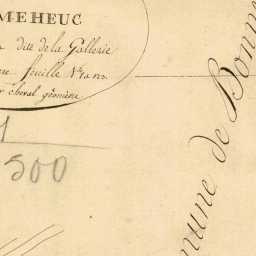 MEHEUC
dite de la Gallerie
feuille
cheval géomètre
1
500
mune de Bonne